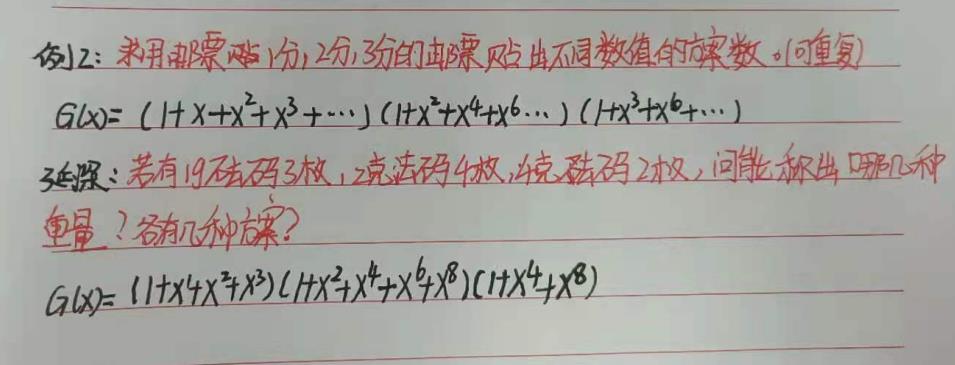 例2：求用邮票贴1分,2分,3分的邮票贴出不同数值的方案数。(可重复)
G(x)= (1+x+x²+x³+⋯)(1+x²+x⁴+x⁶⋯)(1+x³+x⁶+⋯)
延深：若有1g砝码3枚,2克法码4枚,4克砝码2枚,问能称出哪几种
重量？各有几种方案？
G(x)= (1+x+x²+x³)(1+x²+x⁴+x⁶+x⁸)(1+x⁴+x⁸)